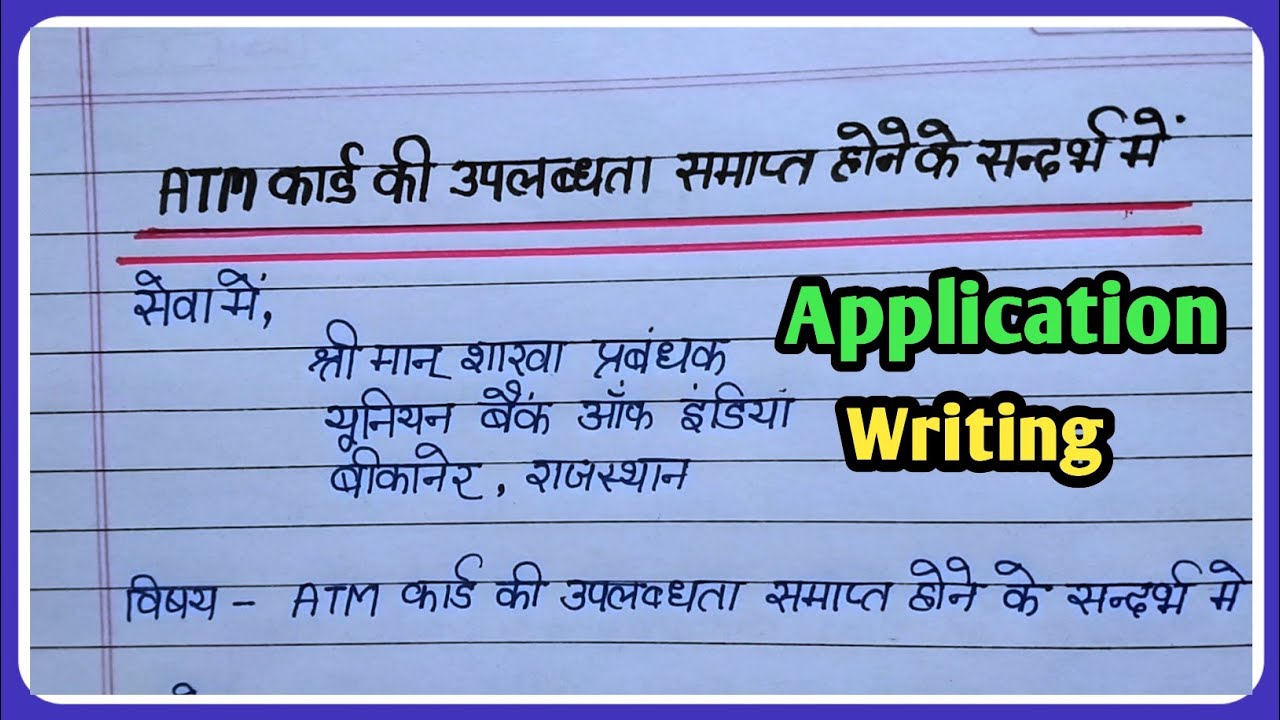 ATM कार्ड की उपलब्धता समाप्त होने के सन्दर्भ में
सेवा में,
श्री मान् शाखा प्रबंधक
यूनियन बैंक ऑफ इंडिया
बीकानेर, राजस्थान
Application
Writing
विषय - ATM कार्ड की उपलब्धता समाप्त होने के सन्दर्भ मे